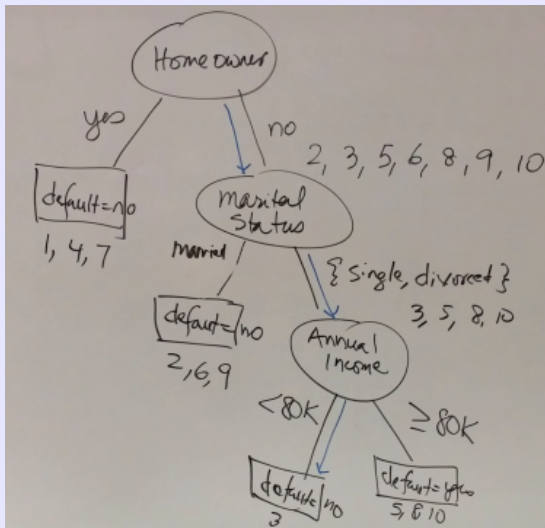 Home owner
yes
no
2, 3, 5, 6, 8, 9, 10
default=no
1, 4, 7
Marital
Status
married
{single, divorced}
3, 5, 8, 10
default=no
2, 6, 9
Annual
Income
<80K
≥80K
default=no
3
default=yes
5, 8 10